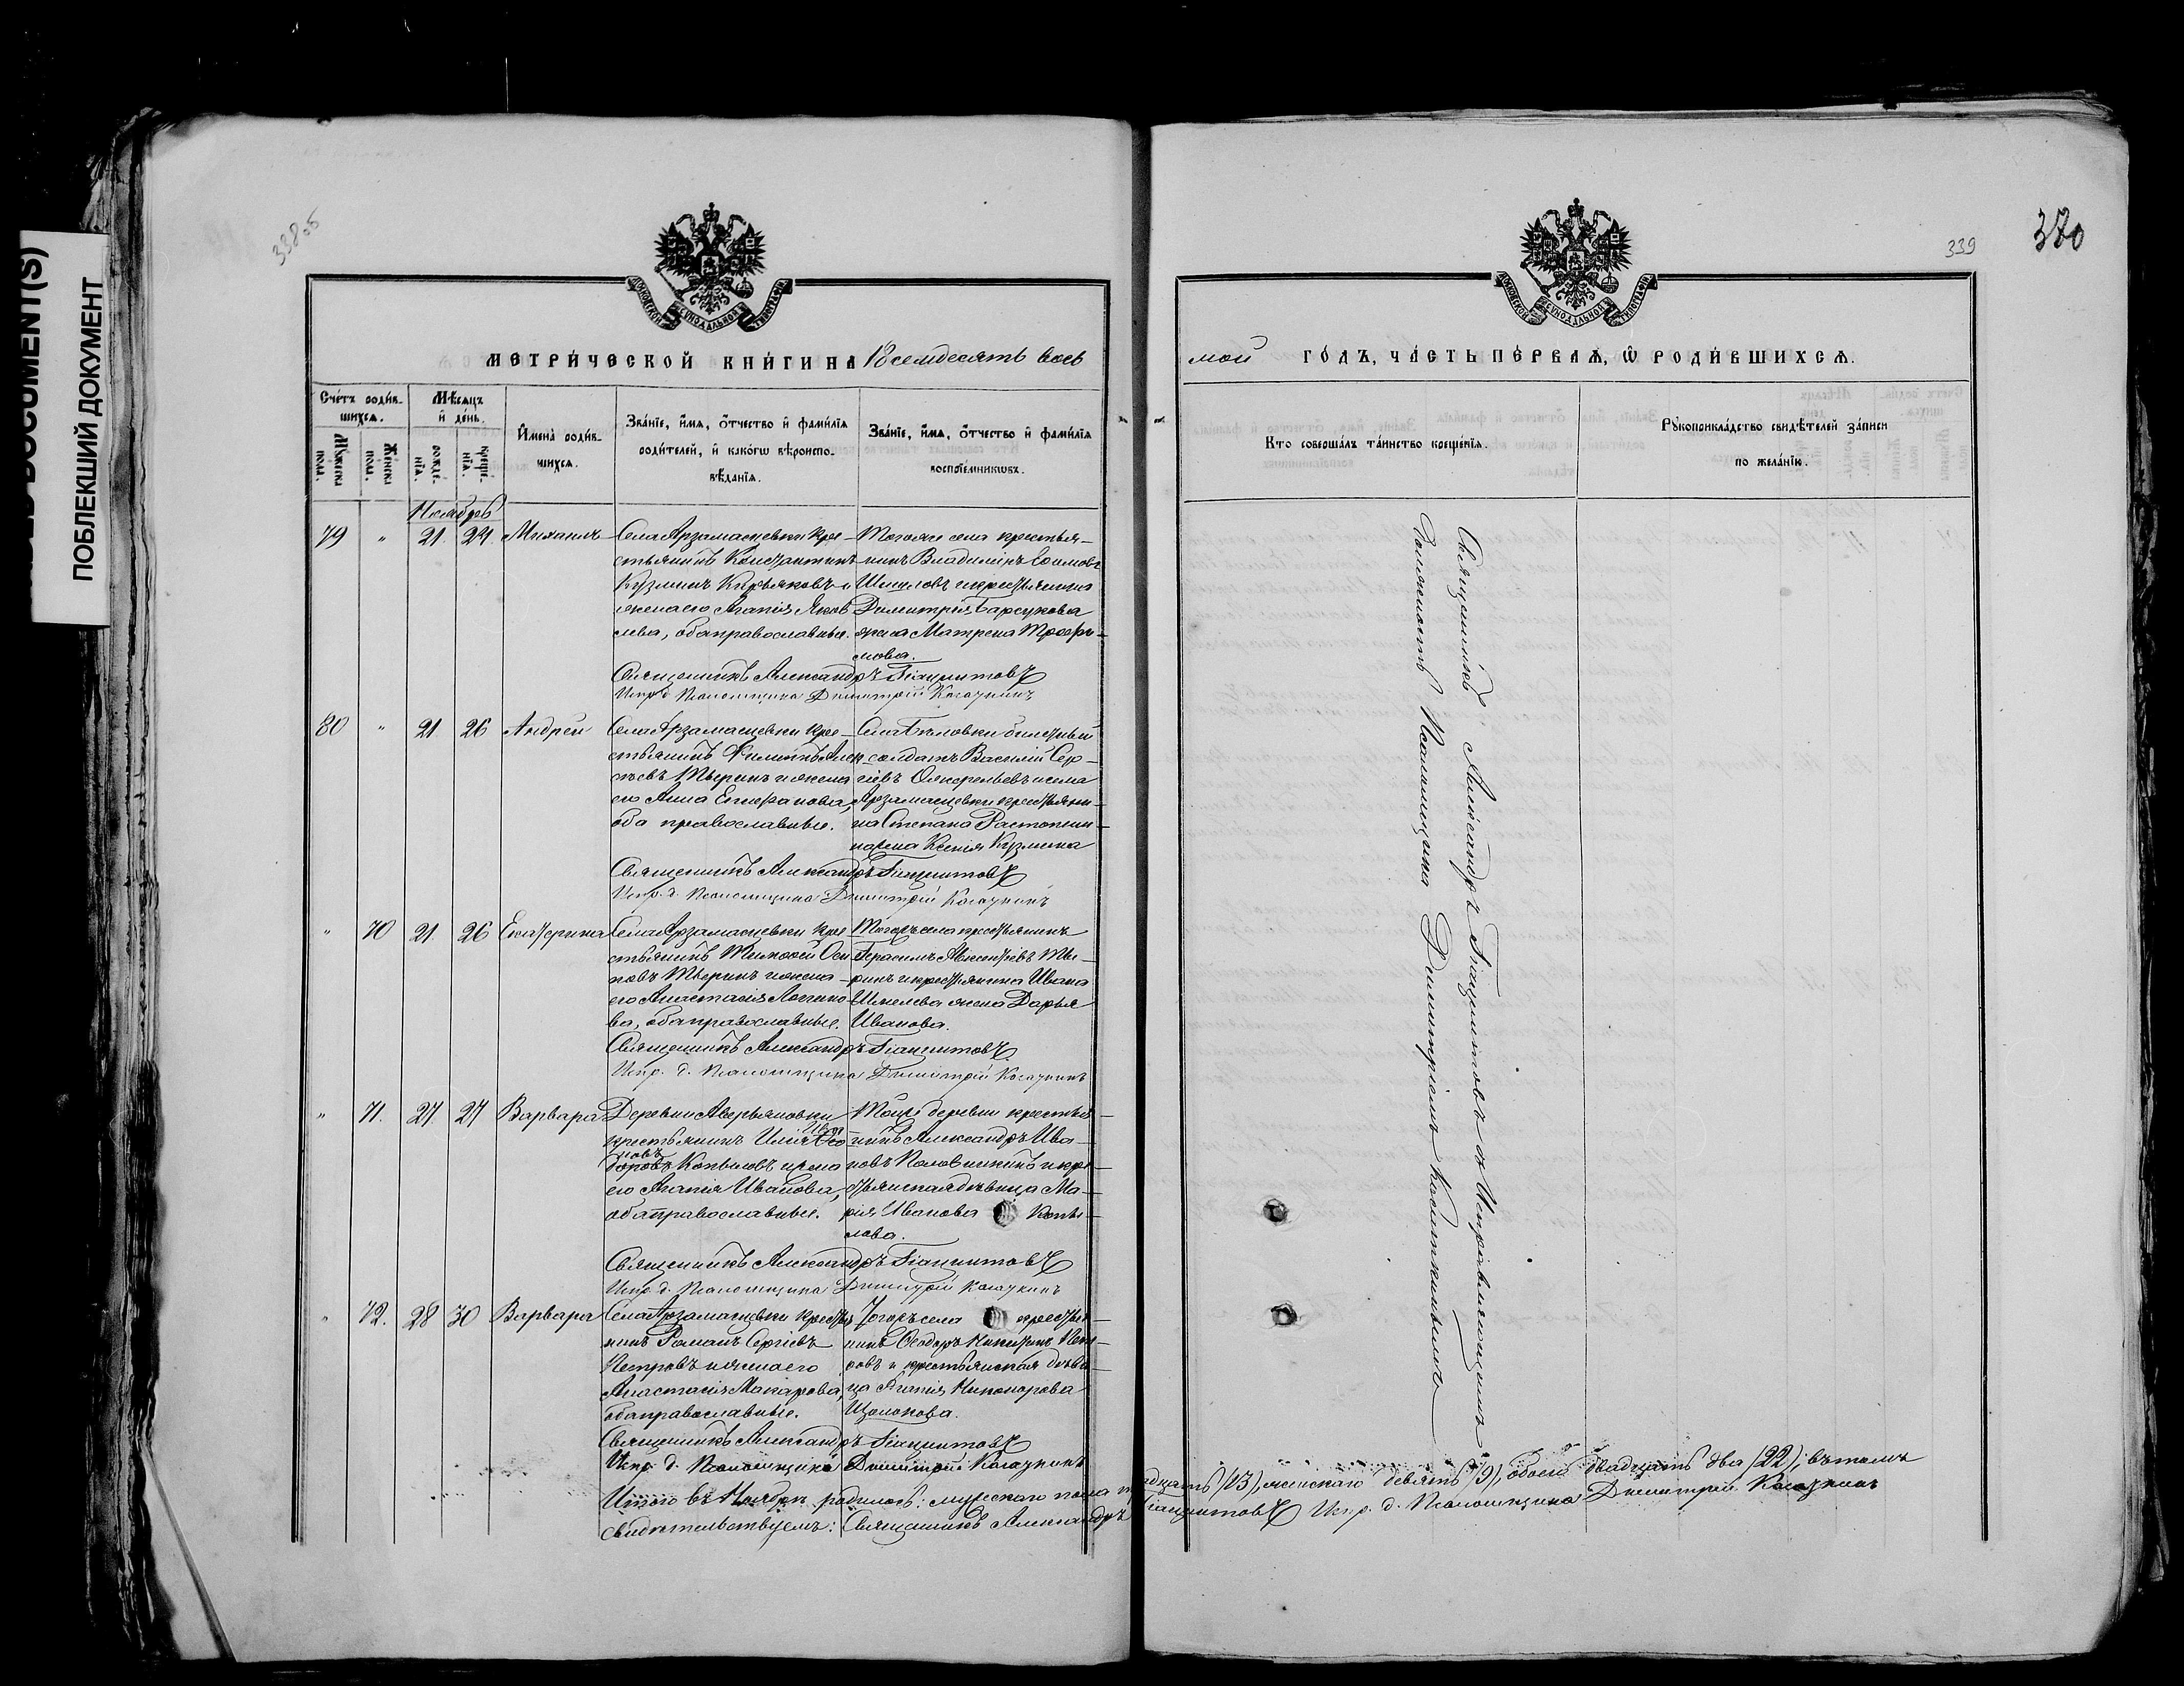 DOCUMENT(S)
ПОБЛЕКШИЙ ДОКУМЕНТ
338об
339
380
МОСКОВСКОЙ СѴНОДАЛЬНОЙ ТИПОГРАФІИ
МОСКОВСКОЙ СѴНОДАЛЬНОЙ ТИПОГРАФІИ
МЕТРИЧЕСКОЙ КНИГИ НА 18 семдесятъ вось
мой ГОДЪ, ЧАСТЬ ПЕРВАѦ, Ѡ РОДИВШИХСѦ.
Счетъ родившихсѧ.
Мужеска пола.
Женска пола.
Мѣсяцъ и день.
рожденїѧ.
крещенїѧ.
Имена родившихсѧ.
Званїе, имѧ, отчество и фамилїѧ родителей, и какогѡ вѣроисповѣданїѧ.
Званїе, имѧ, отчество и фамилїѧ воспрїемникѡвъ.
Кто совершалъ таинство крещенїѧ.
Рукоприкладство свидѣтелей записи по желанїю.
Ноябрь
79 " 21. 24. Михаилъ
Села Арзамасцевки кре-
стьянинъ Константинъ
Кузминъ Кирьяковъ и
жена его Агапія Яков
лева, оба православные.
Тогоже села крестья-
нинъ Владиміръ Ефимовъ
Шмелевъ и крестьянина
Димитрія Барсукова
жена Матрена Трофи-
мова.
Священникъ Александръ Гіацинтовъ
Испр. д. Псаломщика Димитрій Касаткинъ
80 " 21 26 Андрей
Села Арзамасцевки кре-
стьянинъ Филиппъ Алек-
сѣевъ Тыринъ и жена
его Анна
оба православные.
Села Бѣловки билетный
солдатъ Василій Сер-
гіевъ и села
Арзамасцевки крестьяни-
на Степана
жена Ксенія Кузмина
Священникъ Александръ Гіацинтовъ
Испр. д. Псаломщика Димитрій Касаткинъ
" 70 21. 26 Екатерина
Села Арзамасцевки кре
стьянинъ Тимофей Оси
повъ Тыринъ и жена
его Анастасія Логино
ва, оба православные.
Тогожъ села крестьянинъ
Герасимъ Авксентьевъ Ты-
ринъ и крестьянина Ивана
Шмелева жена Дарья
Иванова.
Священникъ Александръ Гіацинтовъ
Испр. д. Псаломщика Димитрій Касаткинъ
" 71. 27. 27 Варвара
Деревни Аверьяновки
крестьянинъ Илія Ива
новъ
Копыловъ и жена
его Агапія Иванова,
оба православные.
Тойже деревни крестья-
нинъ Александръ Ива-
новъ Половинкинъ и кре-
стьянская дѣвица Ма-
рія Иванова Копы-
лова.
Священникъ Александръ Гіацинтовъ
Испр. д. Псаломщика Димитрій Касаткинъ
" 72. 28 30 Варвара
Села Арзамасцевки крестья
нинъ Романъ Сергіевъ
Петровъ и жена его
Анастасія Макарова,
оба православные.
Тогожъ села крестья-
нинъ Ѳеодоръ Никитинъ Пет-
ровъ и крестьянская дѣви-
ца Агапія Никонорова
Щолокова.
Священникъ Александръ Гіацинтовъ
Испр. д. Псаломщика Димитрій Касаткинъ
Итого въ Ноябрѣ родилось: мужскаго пола тринадцать (13), женскаго девять (9), обоего двадцать два (22); въ томъ
свидѣтельствуемъ: Священникъ Александръ Гіацинтовъ Испр. д. Псаломщика Димитрій Касаткинъ
Священникъ Александръ Гіацинтовъ съ Исправляющимъ
должность Псаломщика Димитріемъ Касаткинымъ